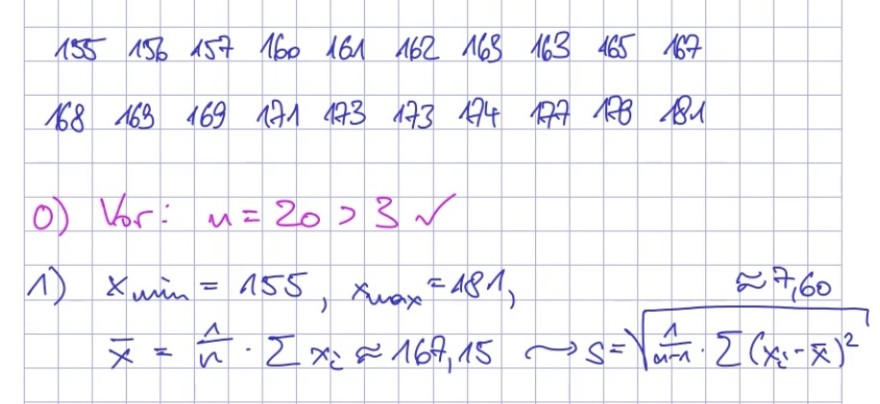 155 156 157 160 161 162 163 163 165 167
168 169 169 171 173 173 174 177 178 181
0) Vor: n = 20 > 3 ✓
1) x_min = 155, x_max = 181, ≈ 7,60
x̄ = 1/n · ∑ xᵢ ≈ 167,15 ⇝ s = √(1/(n-1) · ∑ (xᵢ - x̄)²)